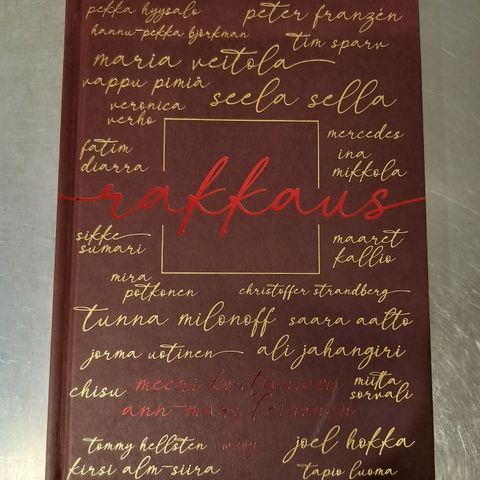 pekka hyysalo
peter franzén
hannu-pekka björkman
tim sparv
maria veitola
vappu pimiä
seela sella
veronica
verho
mercedes
ina
mikkola
fatim
diarra
rakkaus
sikke
sumari
maaret
kallio
mira
potkonen
christoffer strandberg
tunna milonoff
saara aalto
jorma uotinen
ali jahangiri
chisu
meeri koutaniemi
miitta
sorvali
ann-mari leinonen
tommy hellsten
wsoy
joel hokka
kirsi alm-siira
tapio luoma